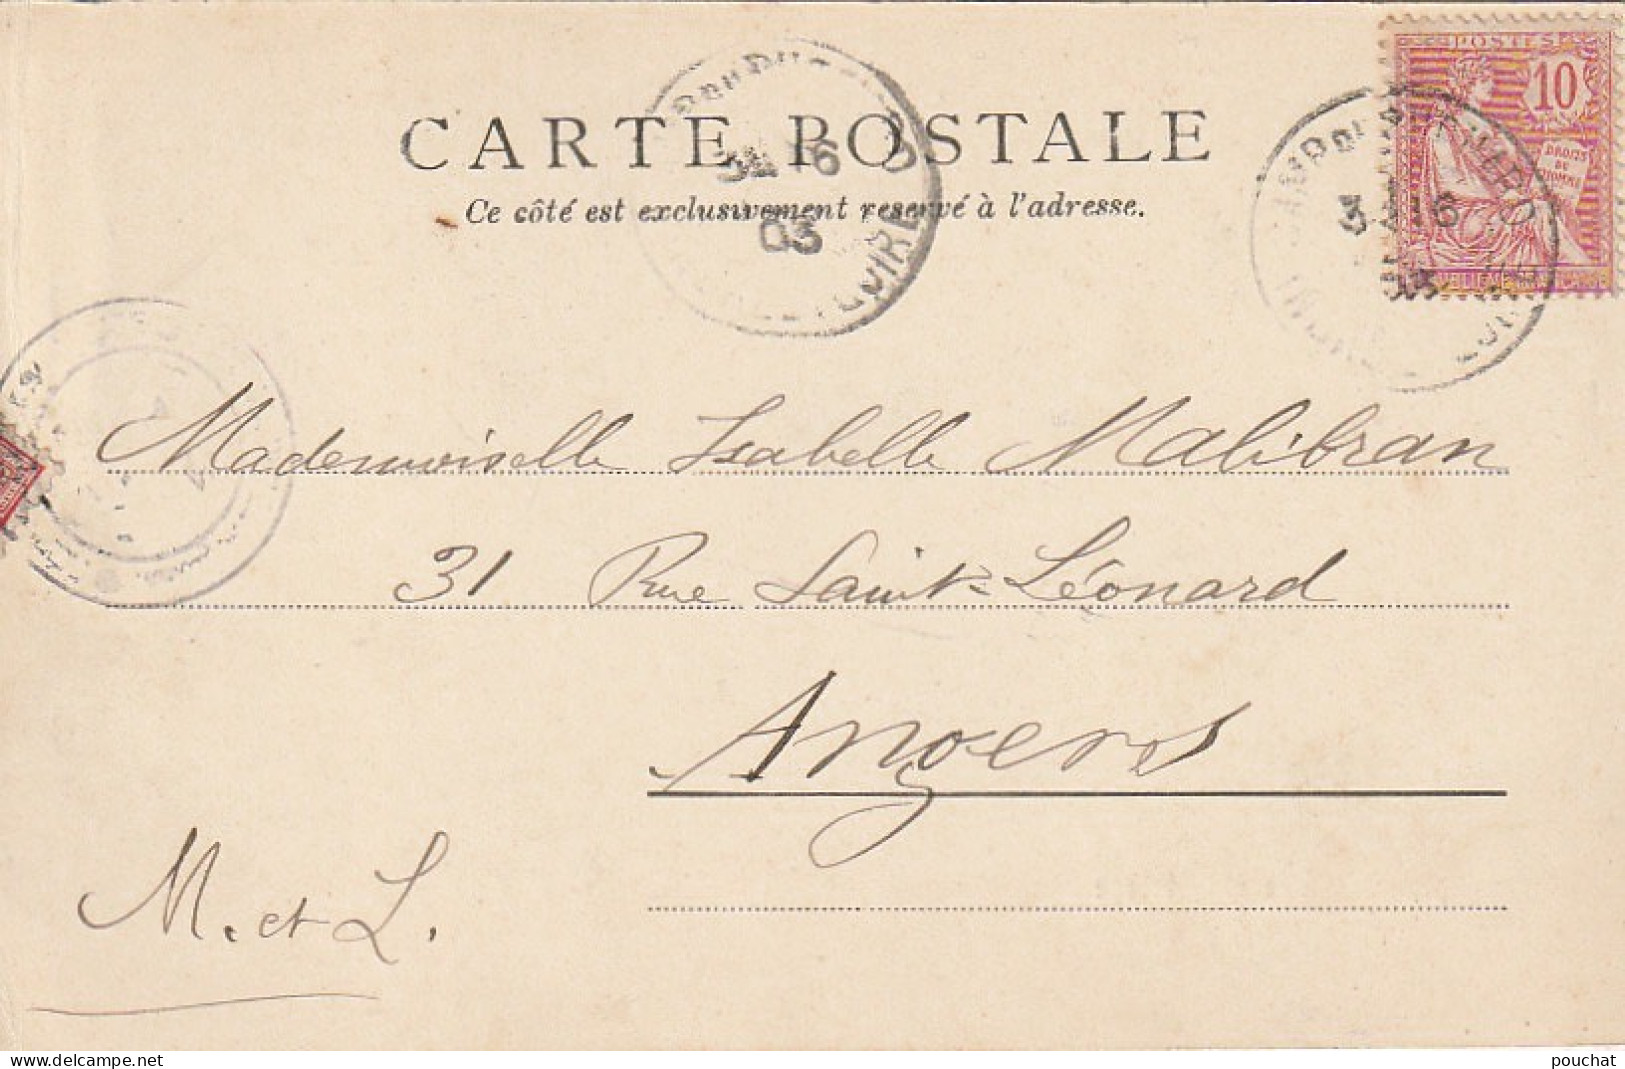 POSTES
10
DROITS DE L'HOMME
CARTE POSTALE
Ce côté est exclusivement reservé à l'adresse.
03
Mademoiselle Isabelle Malibran
31 Rue Saint-Léonard
Angers
M. et L.
delcampe.net
pouchat